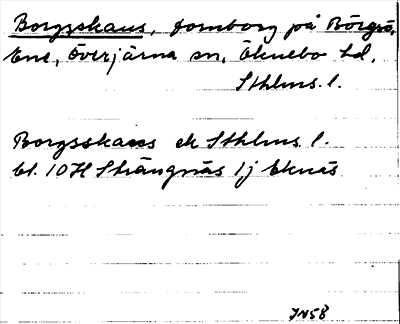 Borgsskans, fornborg på Börgsö,
Ene, Överjärna sn, Öknebo hd,
Sthlms l.
Borgsskans ek Sthlms l.
bl. 10H Strängnäs 1j Eknäs
JN58